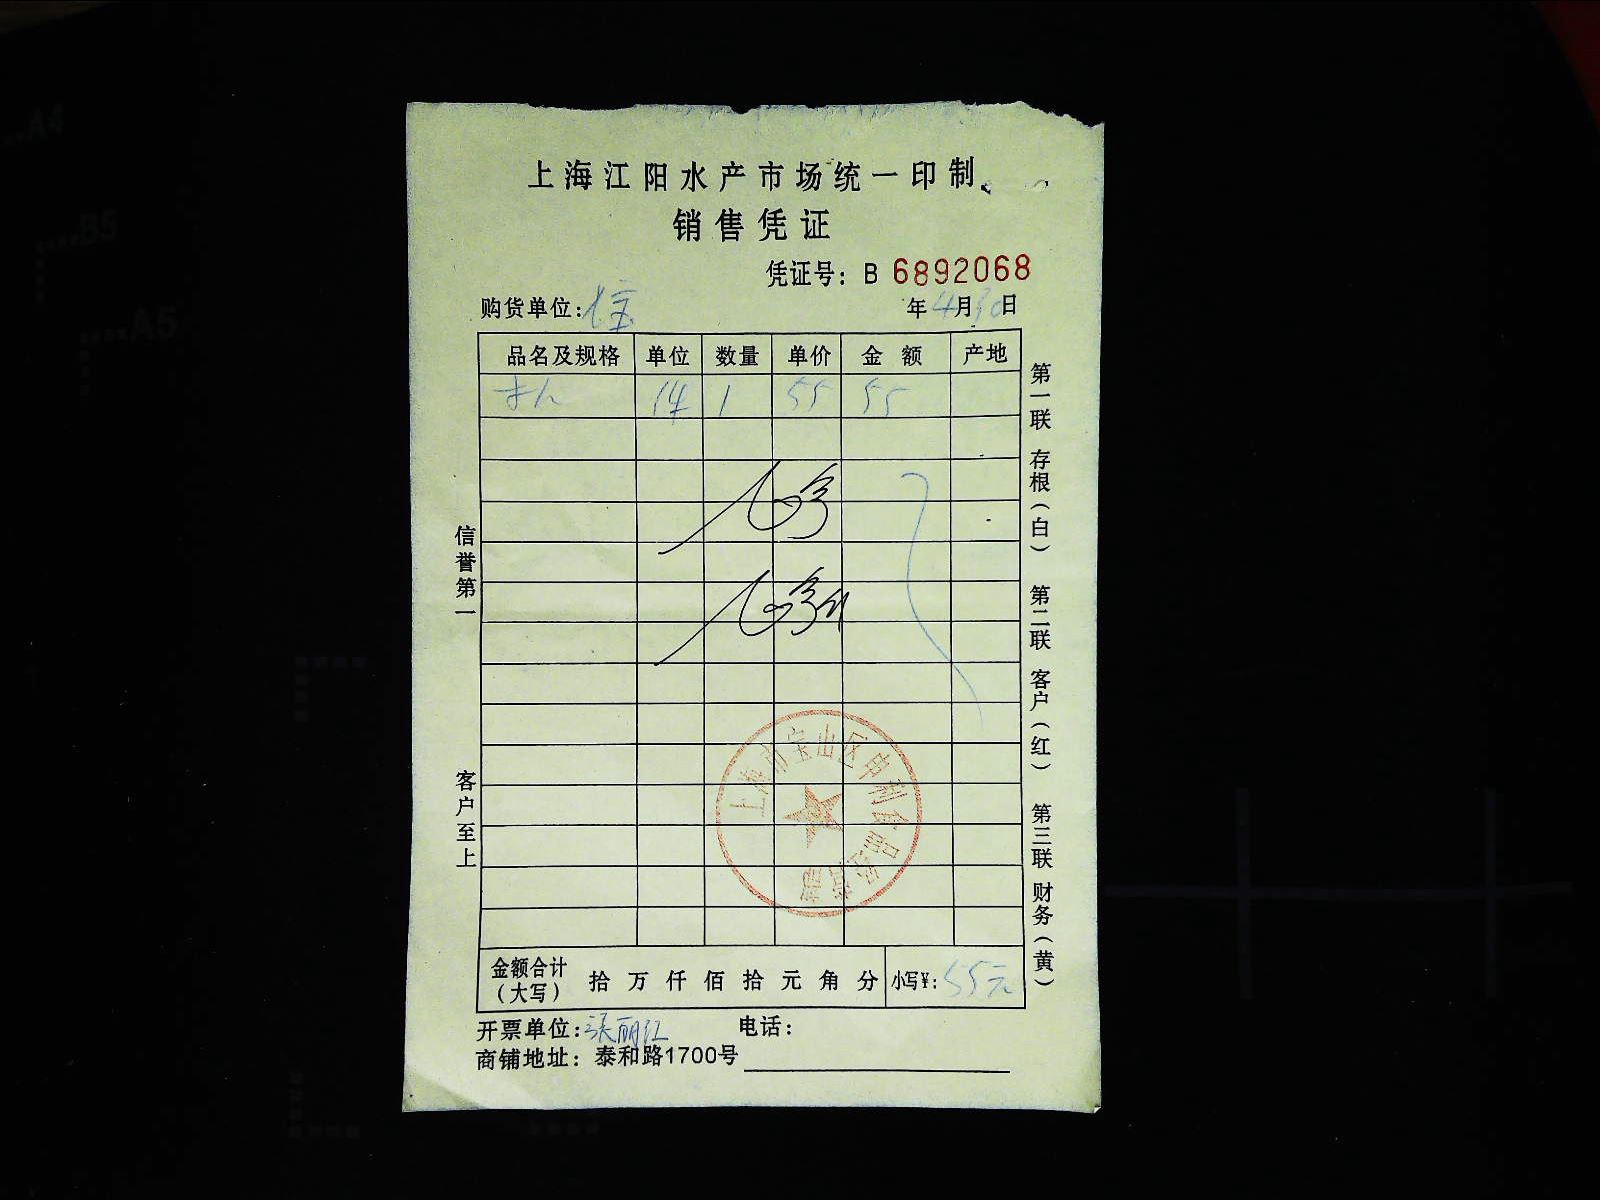 上海江阳水产市场统一印制
销售凭证
凭证号：B 6892068
购货单位：
年4月30日
品名及规格 单位 数量 单价 金额 产地
1 55 55
信誉第一
客户至上
第一联 存根（白） 第二联 客户（红） 第三联 财务（黄）
上海市宝山区申利食品经营部
金额合计（大写） 拾 万 仟 佰 拾 元 角 分 小写¥：55元
开票单位：张丽红 电话：
商铺地址：泰和路1700号
A4
B5
A5